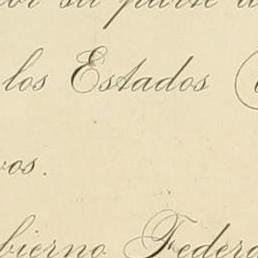 por su parte
los Estados
vos.
bierno Federa